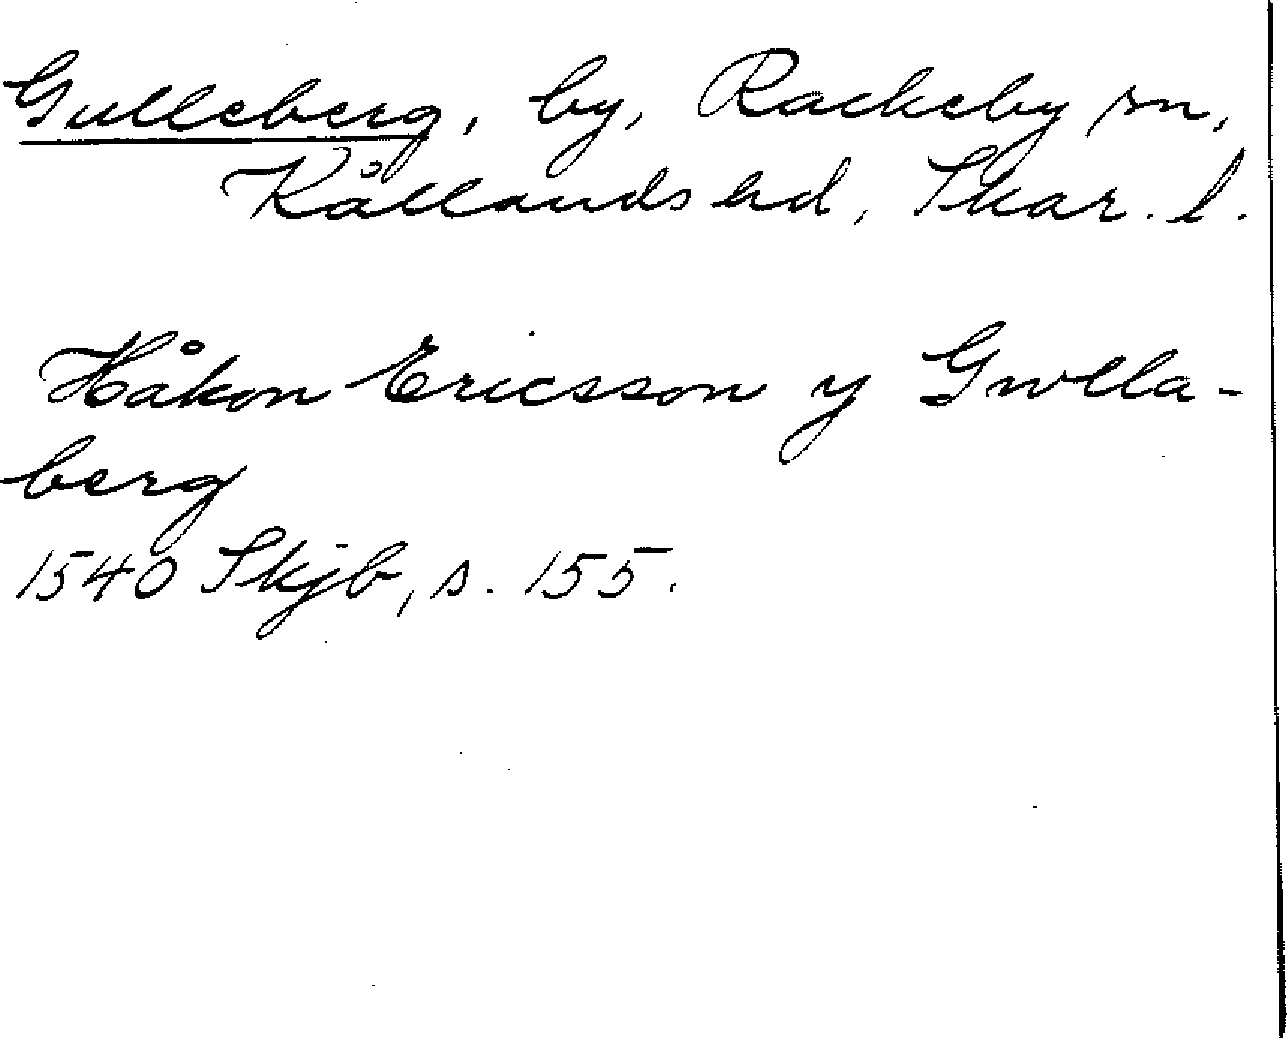 Gulleberg, by, Rackeby sn,
Kållands hd, Skar. l.
Håkon Ericsson y Gwlla-
berg
1540 Skjb, s. 155.